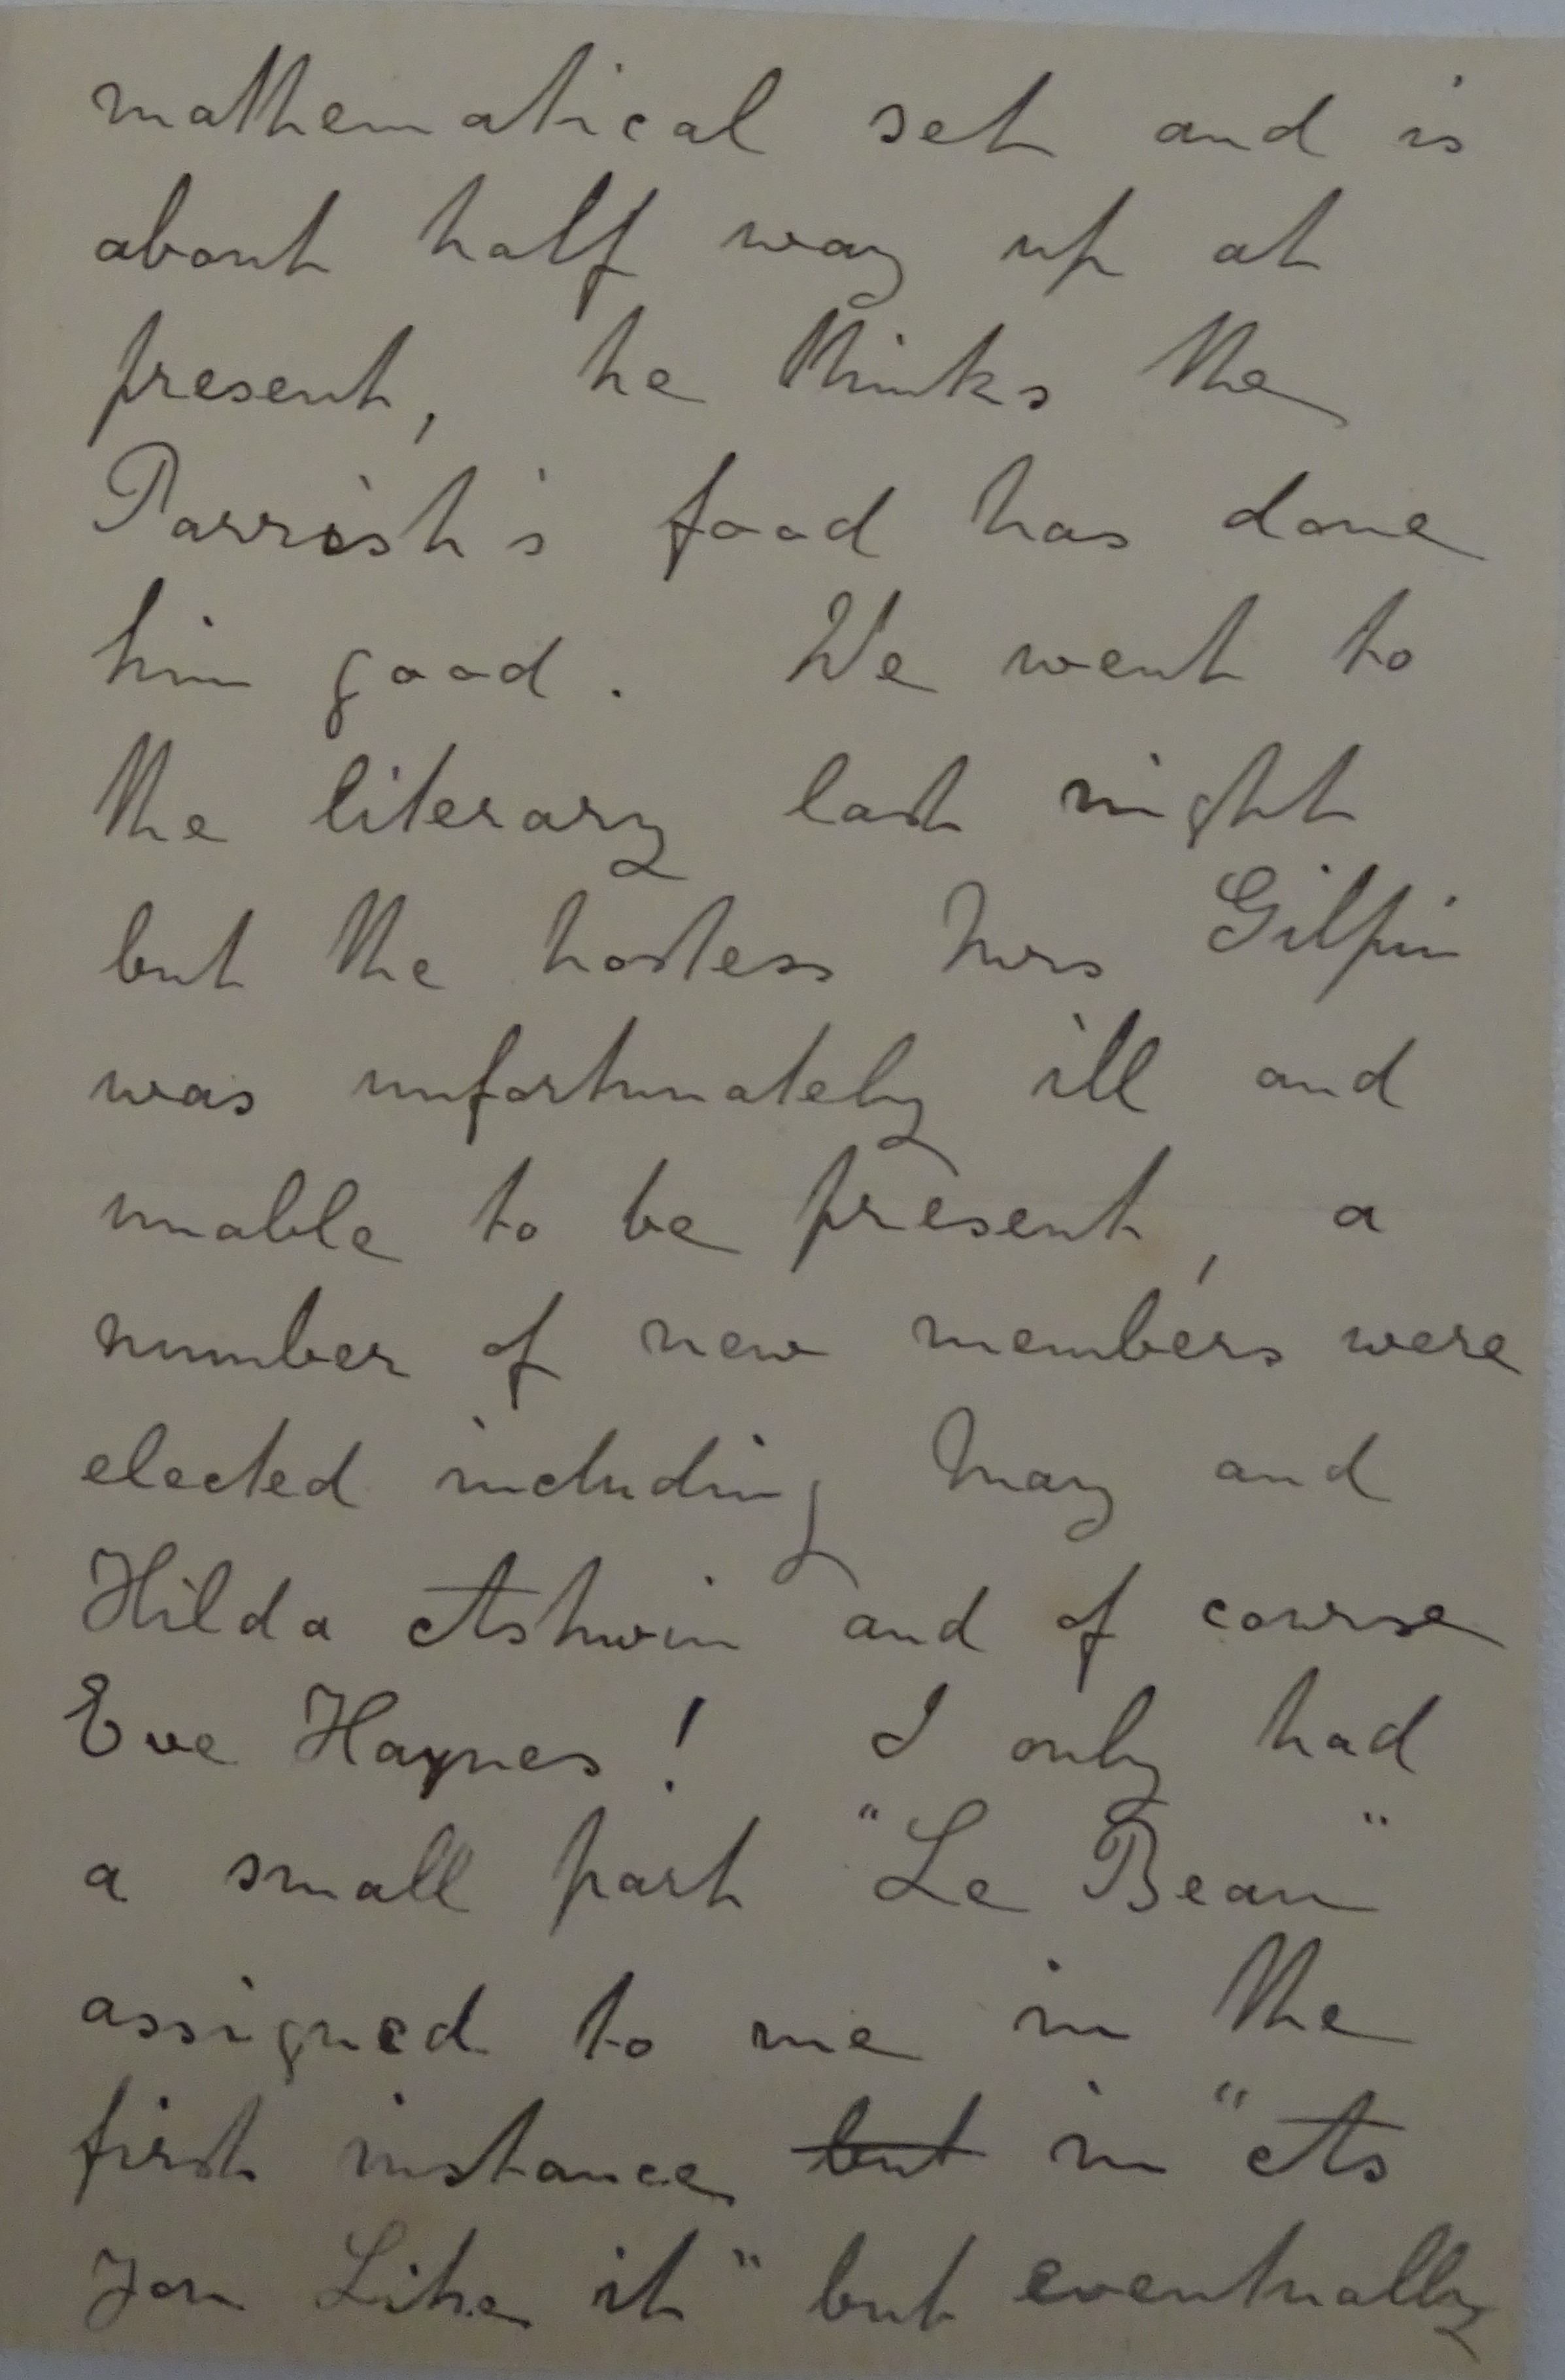 mathematical set and is
about half way up at
present, he thinks the
Parrish's food has done
him good. We went to
the literary last night
but the hostess Mrs Gilpin
was unfortunately ill and
unable to be present, a
number of new members were
elected including May and
Hilda Ashwin and of course
Eve Haynes! I only had
a small part "Le Beau"
assigned to me in the
first instance but in "As
You Like it" but eventually